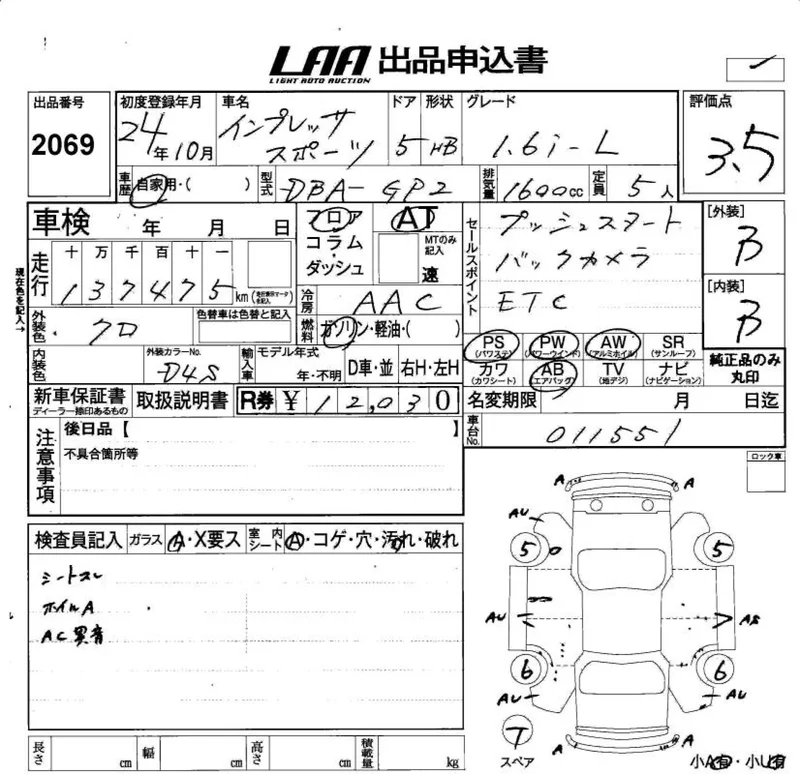 LAA 出品申込書
LIGHT AUTO AUCTION
出品番号 2069
初度登録年月 24年10月
車名 インプレッサ スポーツ
ドア 5
形状 HB
グレード 1.6i-L
評価点 3.5
車歴 自家用・( )
型式 DBA-GP2
排気量 1600cc
定員 5人
車検 年 月 日
フロア
コラム・
ダッシュ
AT
MTのみ記入 速
セールスポイント
プッシュスタート
バックカメラ
ETC
[外装] B
[内装] B
現在色を記入→
走行 十 万 千 百 十 一
137475 km (走行表示マークを記入)
冷房 AAC
燃料 ガソリン・軽油・( )
外装色 クロ
色替車は色替と記入
内装色
外装カラーNo. D4S
輸入車 モデル年式 年・不明
D車・並 右H・左H
PS (パワステ) PW (パワーウインド) AW (アルミホイル) SR (サンルーフ)
カワ (カワシート) AB エアバッグ TV (地デジ) ナビ (ナビゲーション)
純正品のみ丸印
新車保証書 ディーラー捺印あるもの
取扱説明書
R券 ¥12,030
名変期限 月 日迄
車台No. 011551
注意事項
後日品【 】
不具合箇所等
ロック車
検査員記入
ガラス A・X要ス
室内シート A・コゲ・穴・汚れ・破れ
シートスレ
ホイルA
AC異音
A A
AU
5 5
AU AS
6 6
AU AU
T
スペア
A A
小A有・小U有
長さ cm 幅 cm 高さ cm 積載量 kg